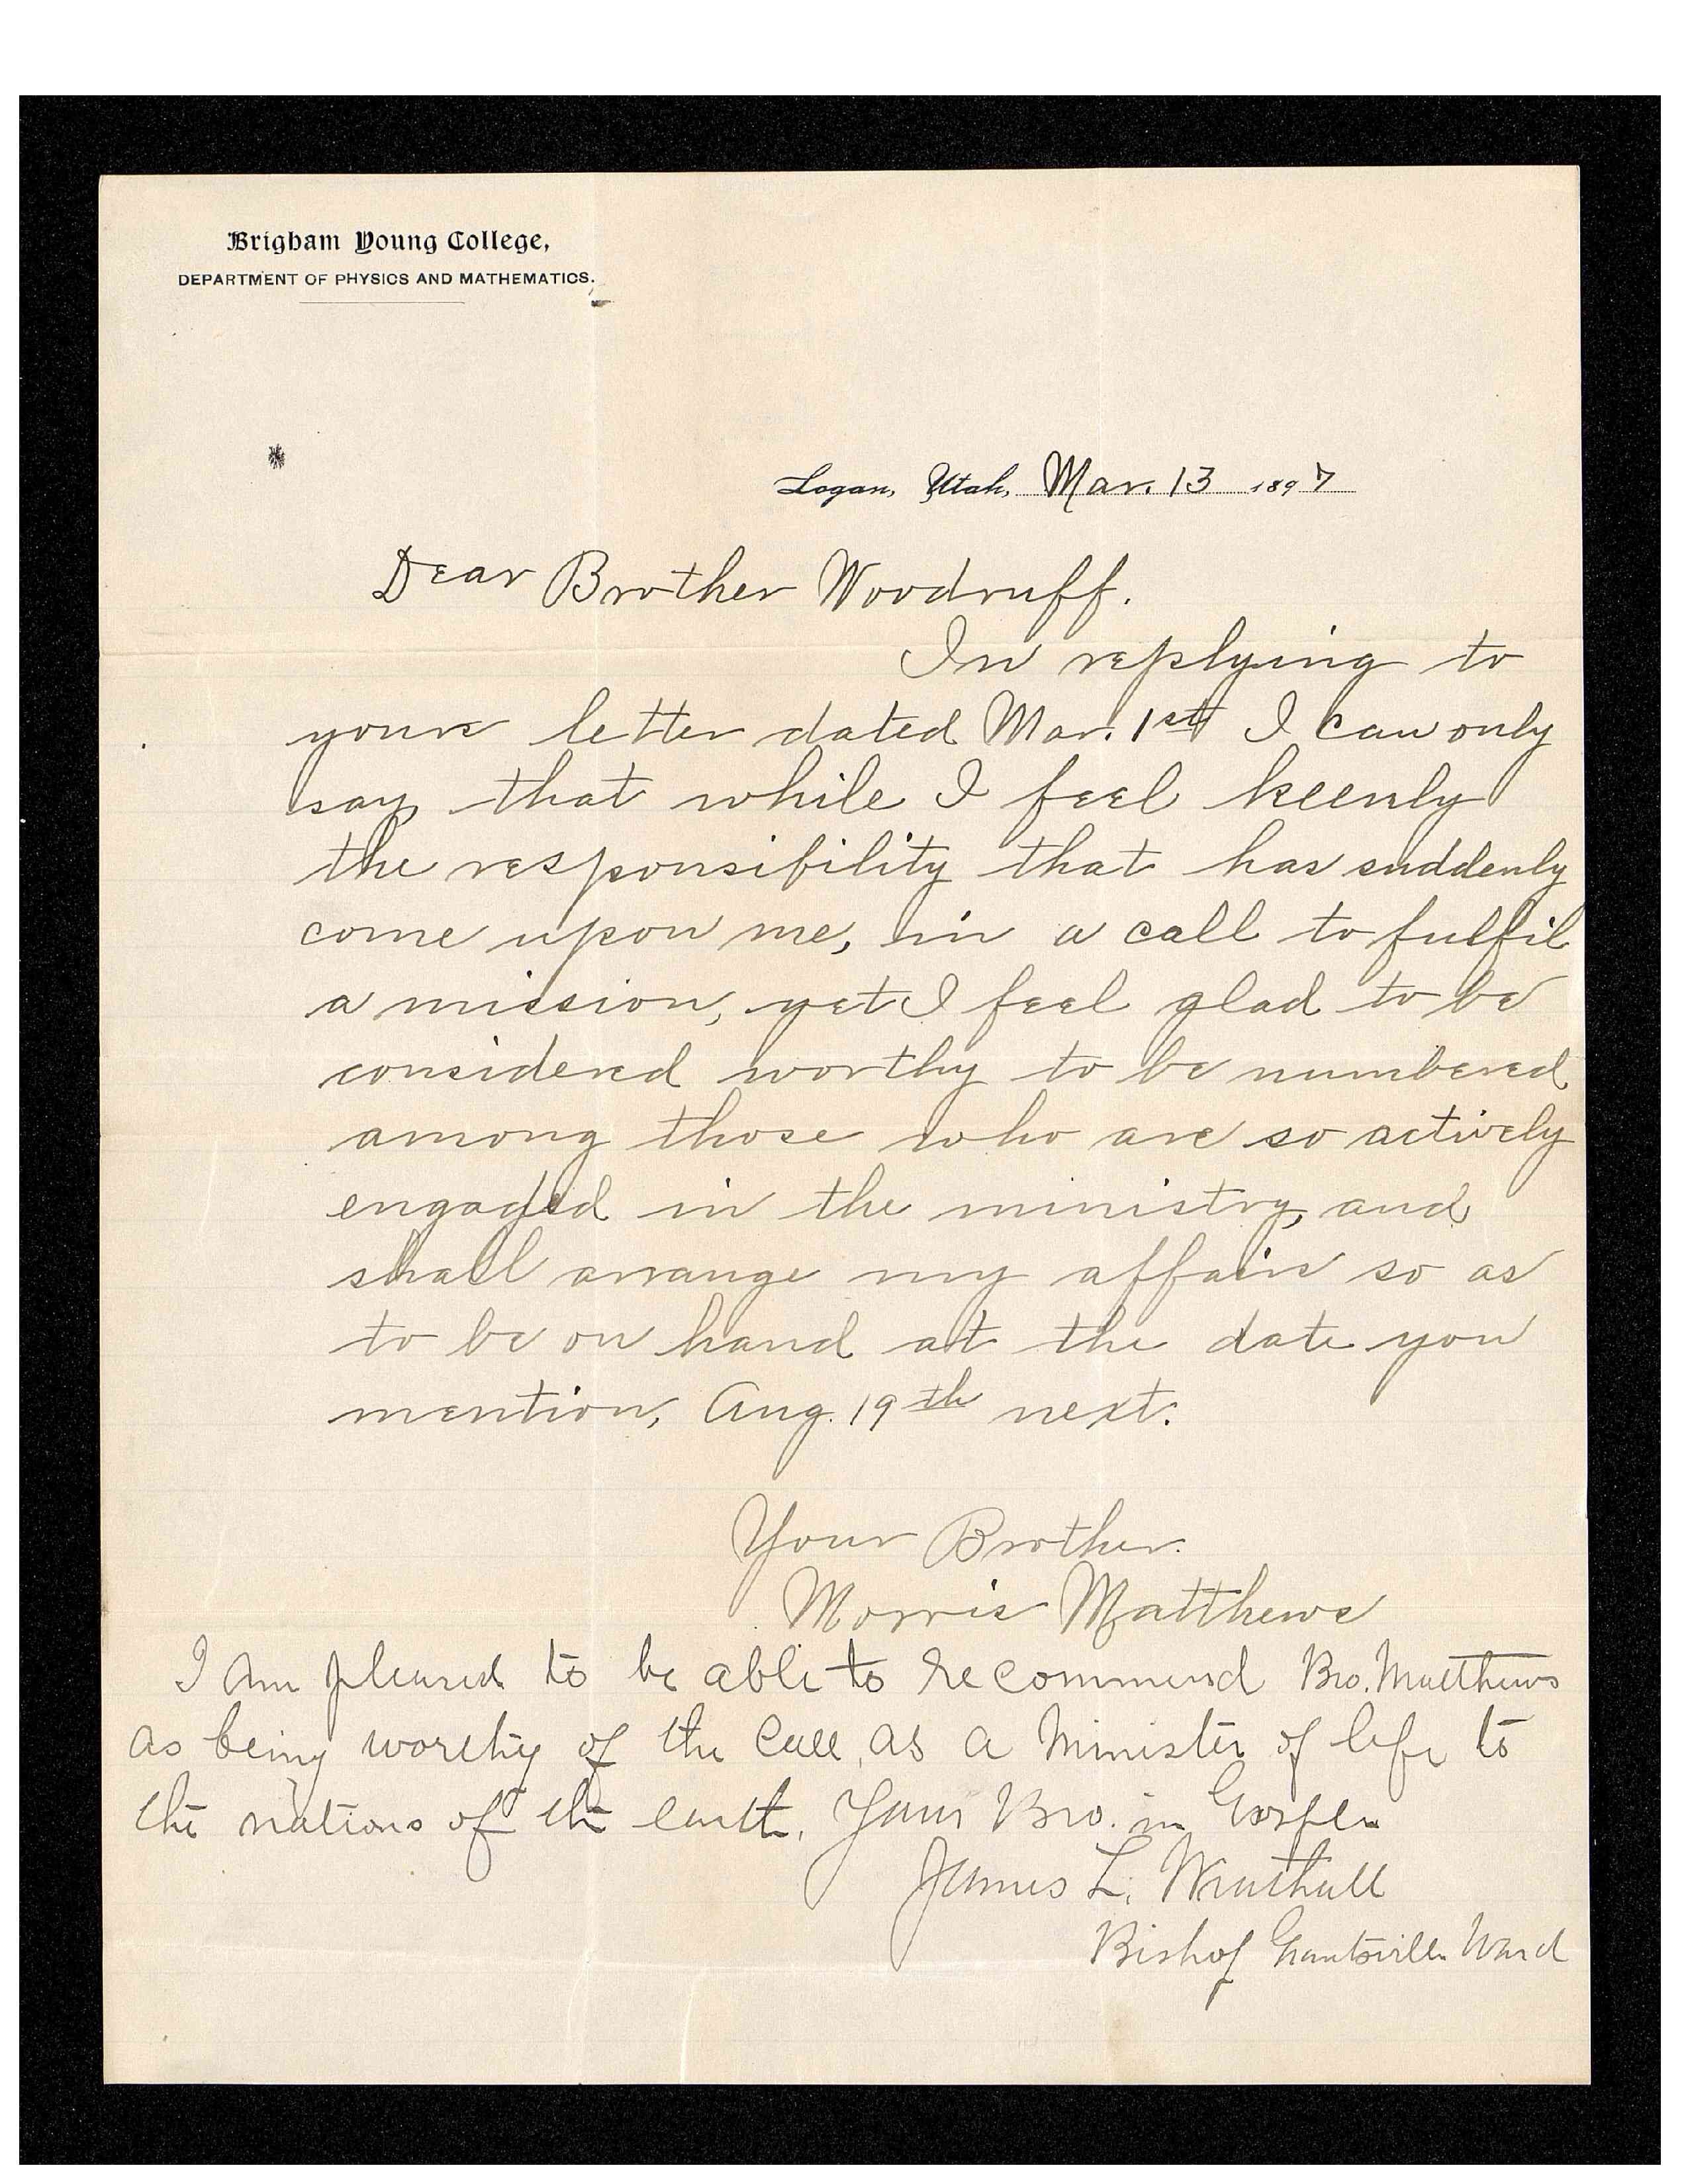 Brigham Young College,
DEPARTMENT OF PHYSICS AND MATHEMATICS.
Logan, Utah, Mar. 13 1897
Dear Brother Woodruff.
In replying to
your letter dated Mar. 1st I can only
say that while I feel keenly
the responsibility that has suddenly
come upon me, in a call to fulfil
a mission, yet I feel glad to be
considered worthy to be numbered
among those who are so actively
engaged in the ministry, and
shall arrange my affairs so as
to be on hand at the date you
mention, Aug. 19th next.
Your Brother.
Morris Matthews
I am pleased to be able to recommend Bro. Matthews
as being worthy of the Call, as a Minister of life to
the nations of the earth. Your Bro. in Gospel
James L. Wrathall
Bishop Grantsville Ward